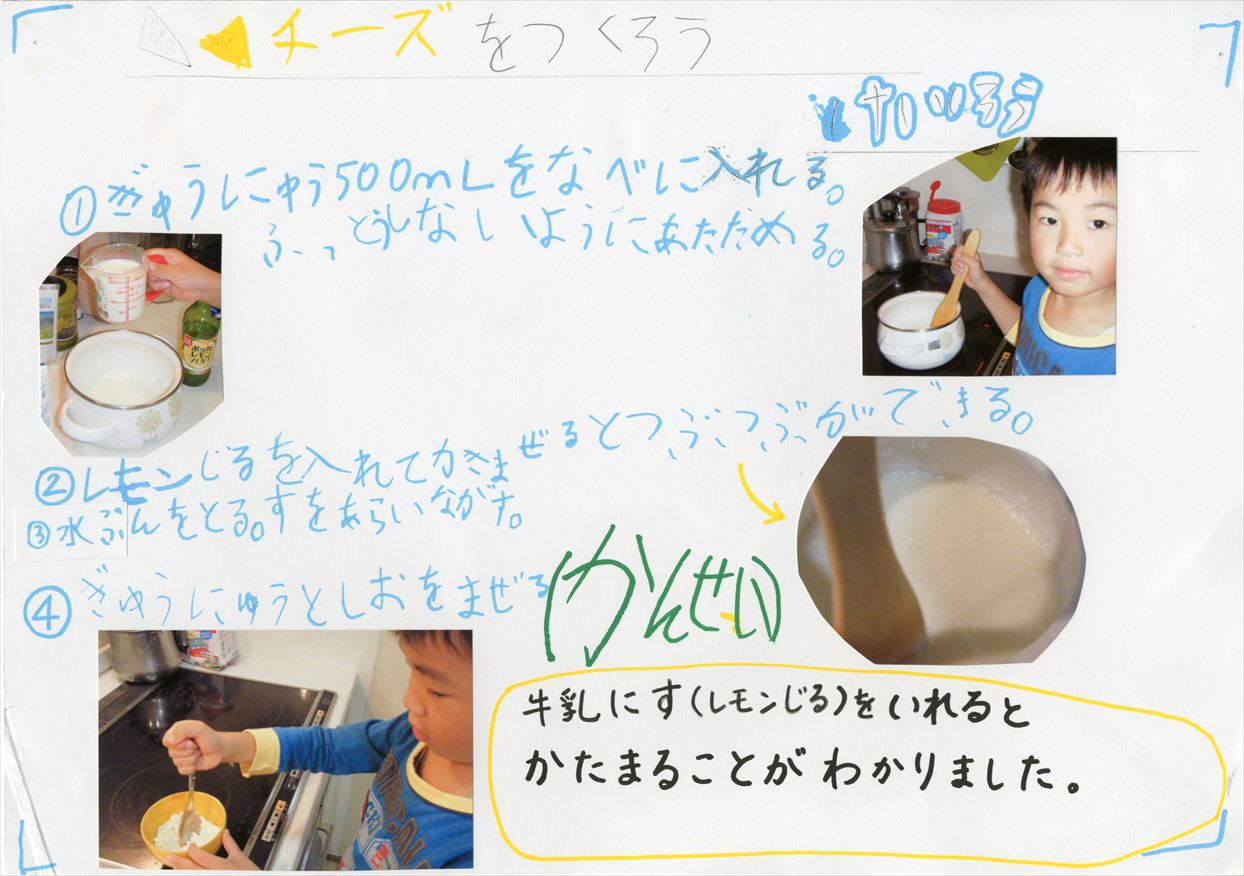 チーズをつくろう
①ぎゅうにゅう500mLをなべに入れる。
ふっとうしないようにあたためる。
ポッカ
レモン
100
②レモンじるを入れてかきまぜるとつぶつぶができる。
③水ぶんをとる。すをあらいながす。
④ぎゅうにゅうとしおをまぜる
かんせい
牛乳にす(レモンじる)をいれると
かたまることがわかりました。